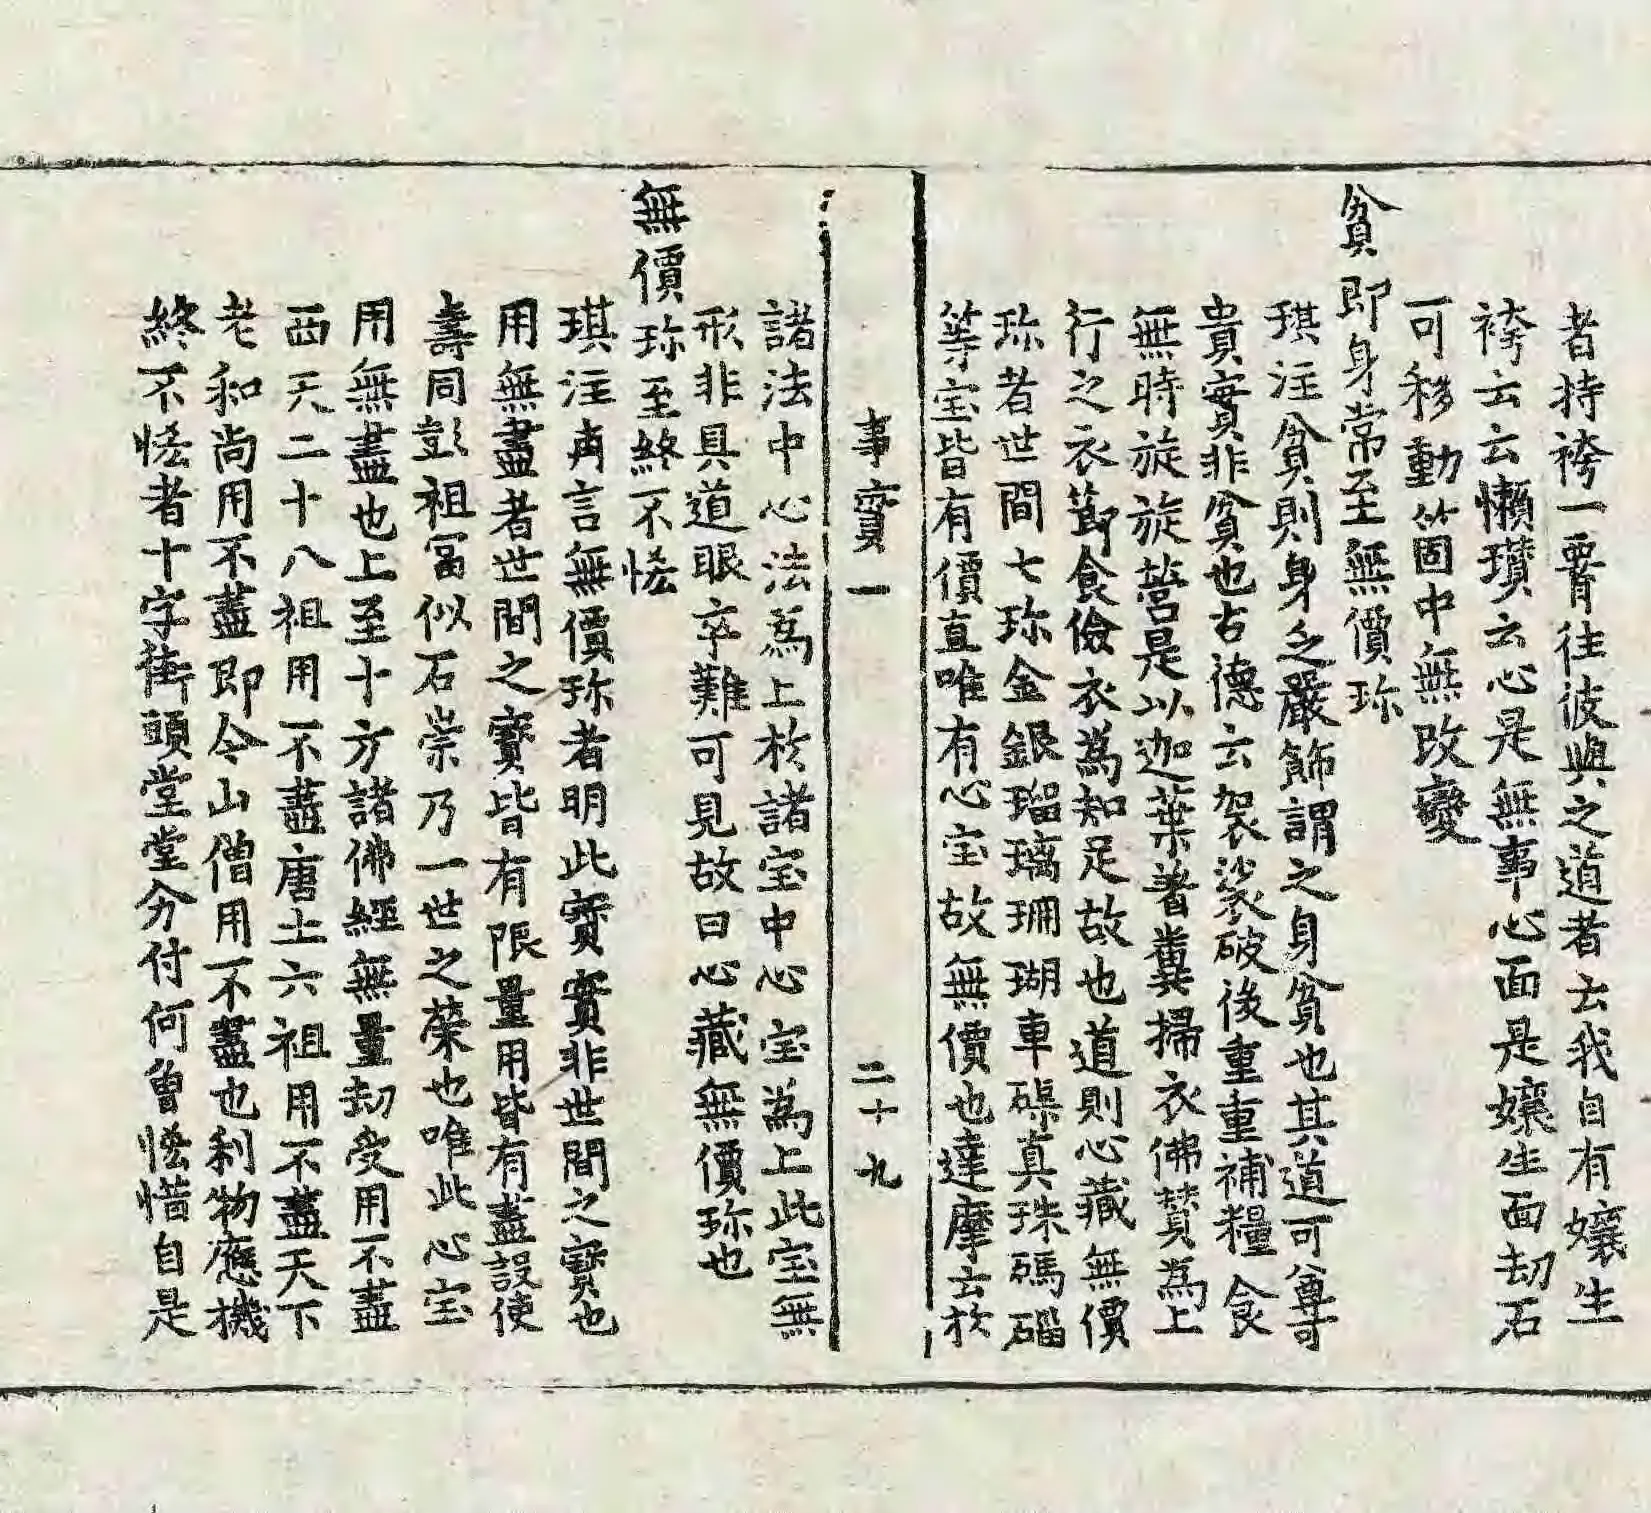 者持袴一�Outline往彼與之道者云我自有孃生
袴云云懶瓚云心是無事心面是孃生面劫石
可移動箇中無改變
貧即身常至無價珎
琪注貧則身乏嚴飾謂之身貧也其道可尊可
貴實非貧也古德云袈裟破後重重補糧食
無時旋旋營是以迦葉著糞掃衣佛賛為上
行之衣節食儉衣為知足故也道則心藏無價
珎者世間七珎金銀瑠璃珊瑚車磲真珠碼碯
等宝皆有價直唯有心宝故無價也達摩云於
事實一 二十九
諸法中心法為上於諸宝中心宝為上此宝無
形非具道眼卒難可見故曰心藏無價珎也
無價珎至終不恡
琪注再言無價珎者明此寶實非世間之寶也
用無盡者世間之寶皆有限量用皆有盡設使
壽同彭祖冨似石崇乃一世之榮也唯此心宝
用無盡也上至十方諸佛經無量劫受用不盡
西天二十八祖用不盡唐土六祖用不盡天下
老和尚用不盡即今山僧用不盡也利物應機
終不恡者十字街頭堂堂分付何曾恡惜自是